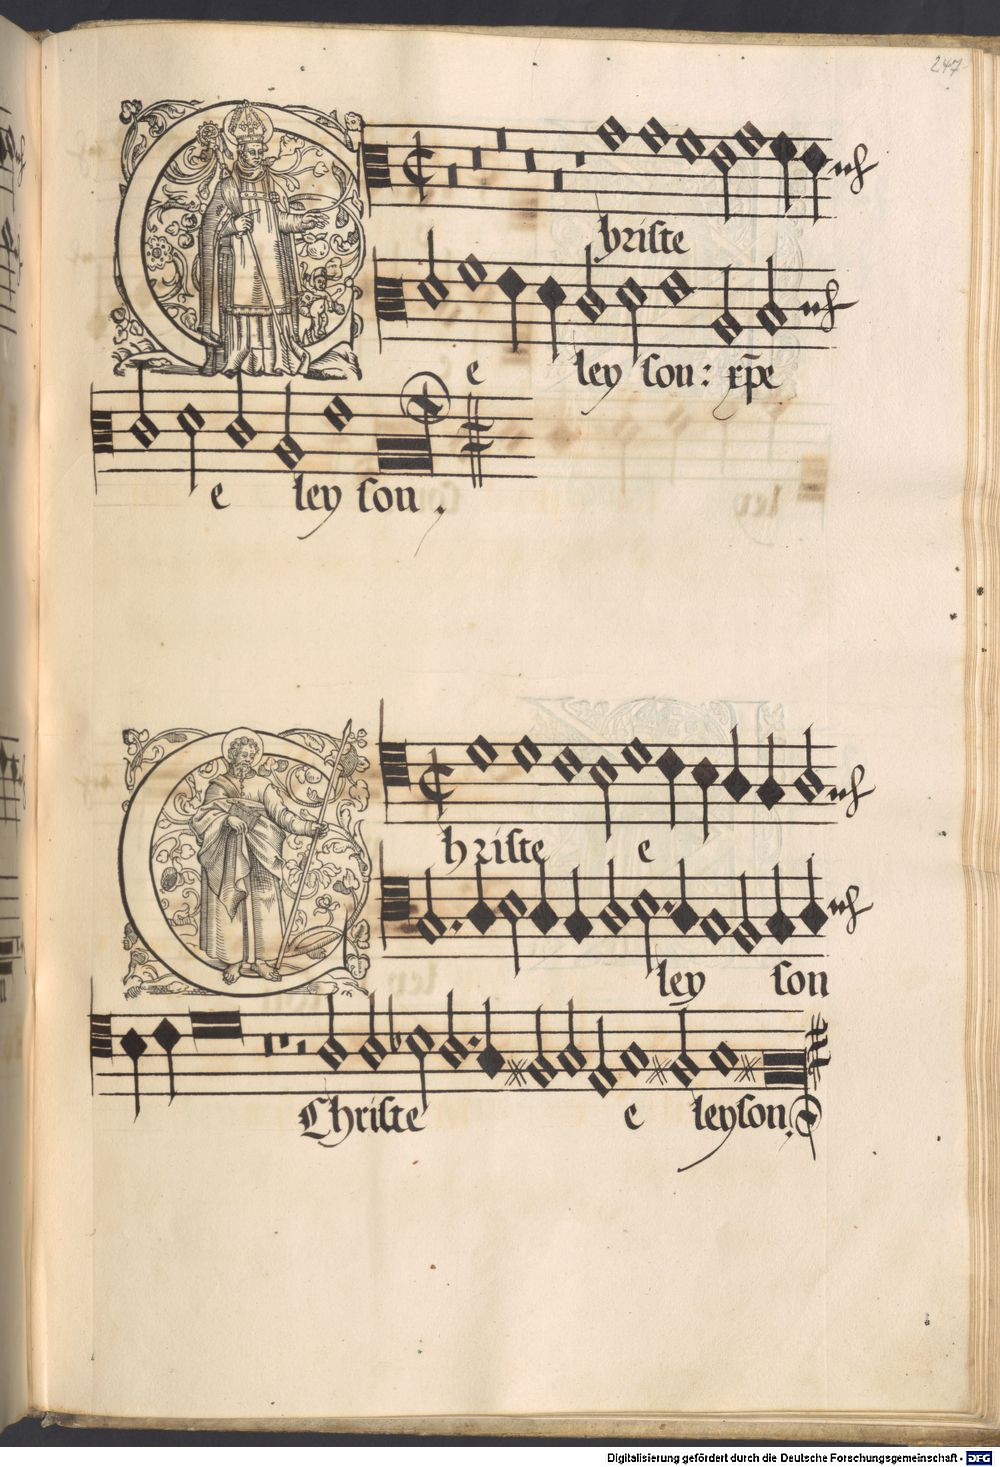 247
Christe
e ley son: xp̄e
e ley son.
Christe e
ley son
Christe e leyson.
Digitalisierung gefördert durch die Deutsche Forschungsgemeinschaft - DFG